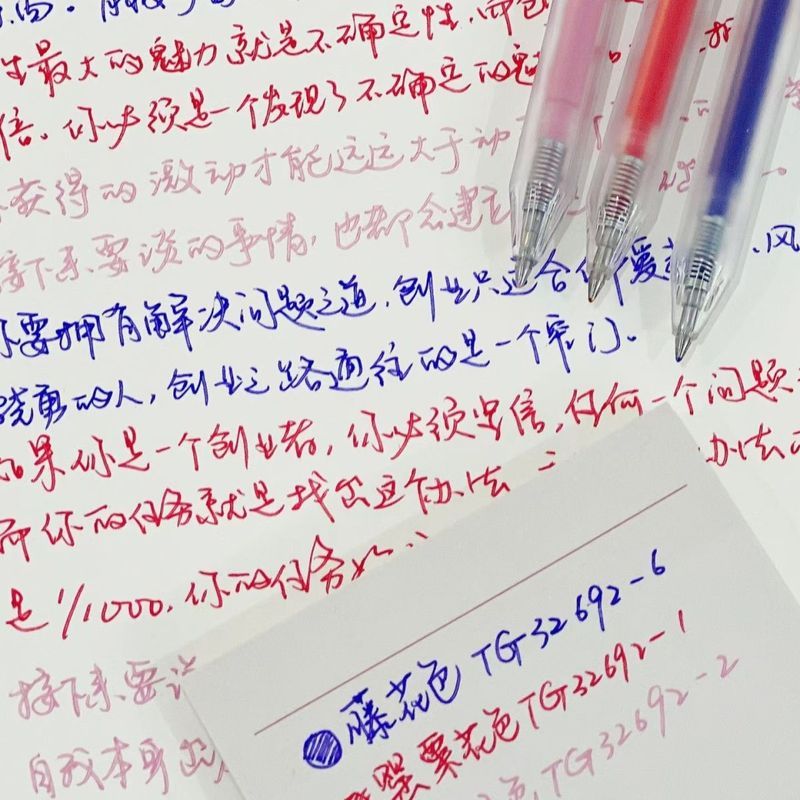 生最大的魅力就是不确定性,而包
信。你必须是一个发现了不确定的魅
获得的激动才能远远大于动
接下来要谈的事情,也都会建立
不要拥有解决问题之道,创业只适合 爱 、风
骁勇的人,创业之路通往的是一个窄门。
如果你是一个创业者,你必须坚信,任何一个问题
而你的任务就是找出这个办法 二 办法
是1/1000,你的任务
接下来要谈
自我本身
藤花色 TG32692-6
罂粟花色 TG32692-1
色 TG32692-2